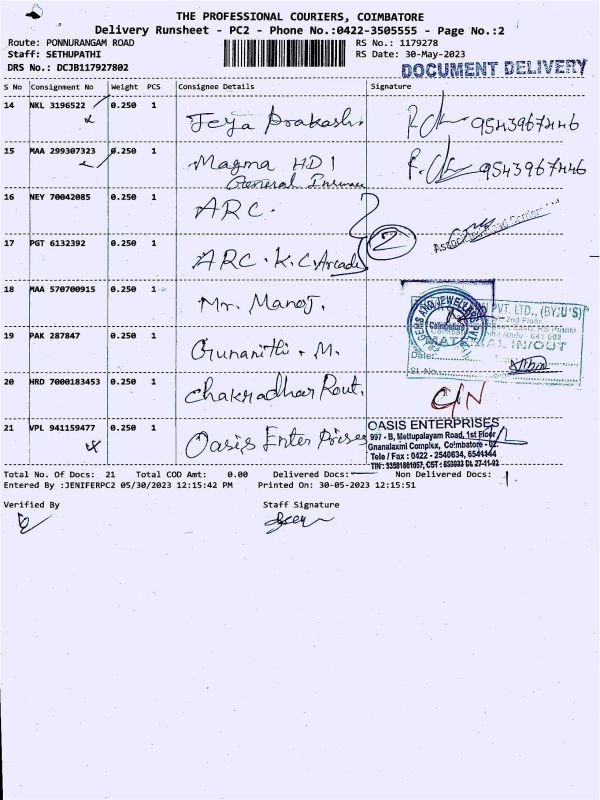 THE PROFESSIONAL COURIERS, COIMBATORE
Delivery Runsheet - PC2 - Phone No.:0422-3505555 - Page No.:2
Route: PONNURANGAM ROAD RS No.: 1179278
Staff: SETHUPATHI RS Date: 30-May-2023
DRS No.: DCJB117927802 DOCUMENT DELIVERY
S No Consignment No Weight PCS Consignee Details Signature
14 NKL 3196522 0.250 1 Jeya Prakash. 9543967446
15 MAA 299307323 0.250 1 Magma HDI 9543967446
General Insurance
16 NEY 70042085 0.250 1 ARC.
17 PGT 6132392 0.250 1 ARC. K.C. Arcade 2
18 MAA 570700915 0.250 1 Mr. Manoj.
PVT. LTD., (BYJU'S)
2nd Floor,
Coimbatore
641 002
IN/OUT
Date:
Sl.No.
19 PAK 287847 0.250 1 Gunanithi. M.
20 HRD 7000183453 0.250 1 Chakradhar Rout. C/N
21 VPL 941159477 0.250 1 Oasis Enterprises
OASIS ENTERPRISES
997 - B, Mettupalayam Road, 1st Floor
Gnanalaxmi Complex, Coimbatore -
Tele / Fax : 0422 - 2540634, 6541144
Total No. Of Docs: 21 Total COD Amt: 0.00 Delivered Docs: Non Delivered Docs: 1
Entered By :JENIFERPC2 05/30/2023 12:15:42 PM Printed On: 30-05-2023 12:15:51
Verified By Staff Signature